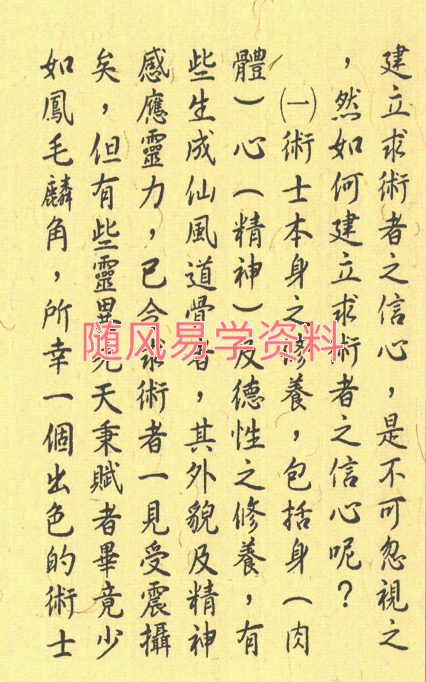 建立求術者之信心，是不可忽視之
，然如何建立求術者之信心呢？
㈠術士本身之修養，包括身（肉
體）心（精神）及德性之修養，有
些生成仙風道骨者，其外貌及精神
感應靈力，已令求術者一見受震攝
矣，但有些靈異先天秉賦者畢竟少
如鳳毛麟角，所幸一個出色的術士
随风易学资料